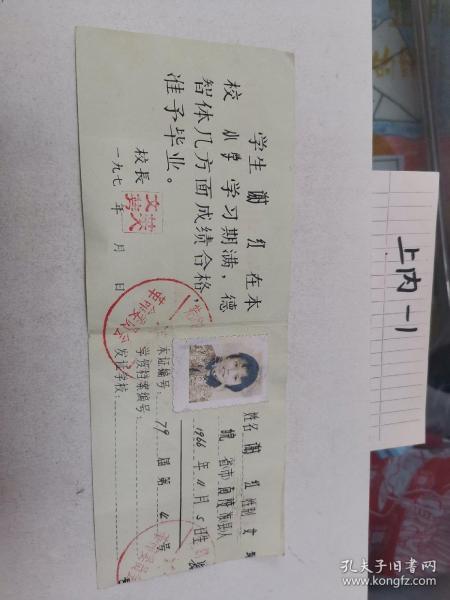 学生 谢 红 在本
校 小学 学习期满，德
智体几方面成绩合格，
准予毕业。
校長
一九七 年 月 日
姓名 谢 红 性别 女
皖 省市 南陵 县人
1966 年 11 月 5 日生
本证编号： 79 届第 4 号
学校档案编号：
发证学校：
上内一11
孔夫子旧书网
www.kongfz.com